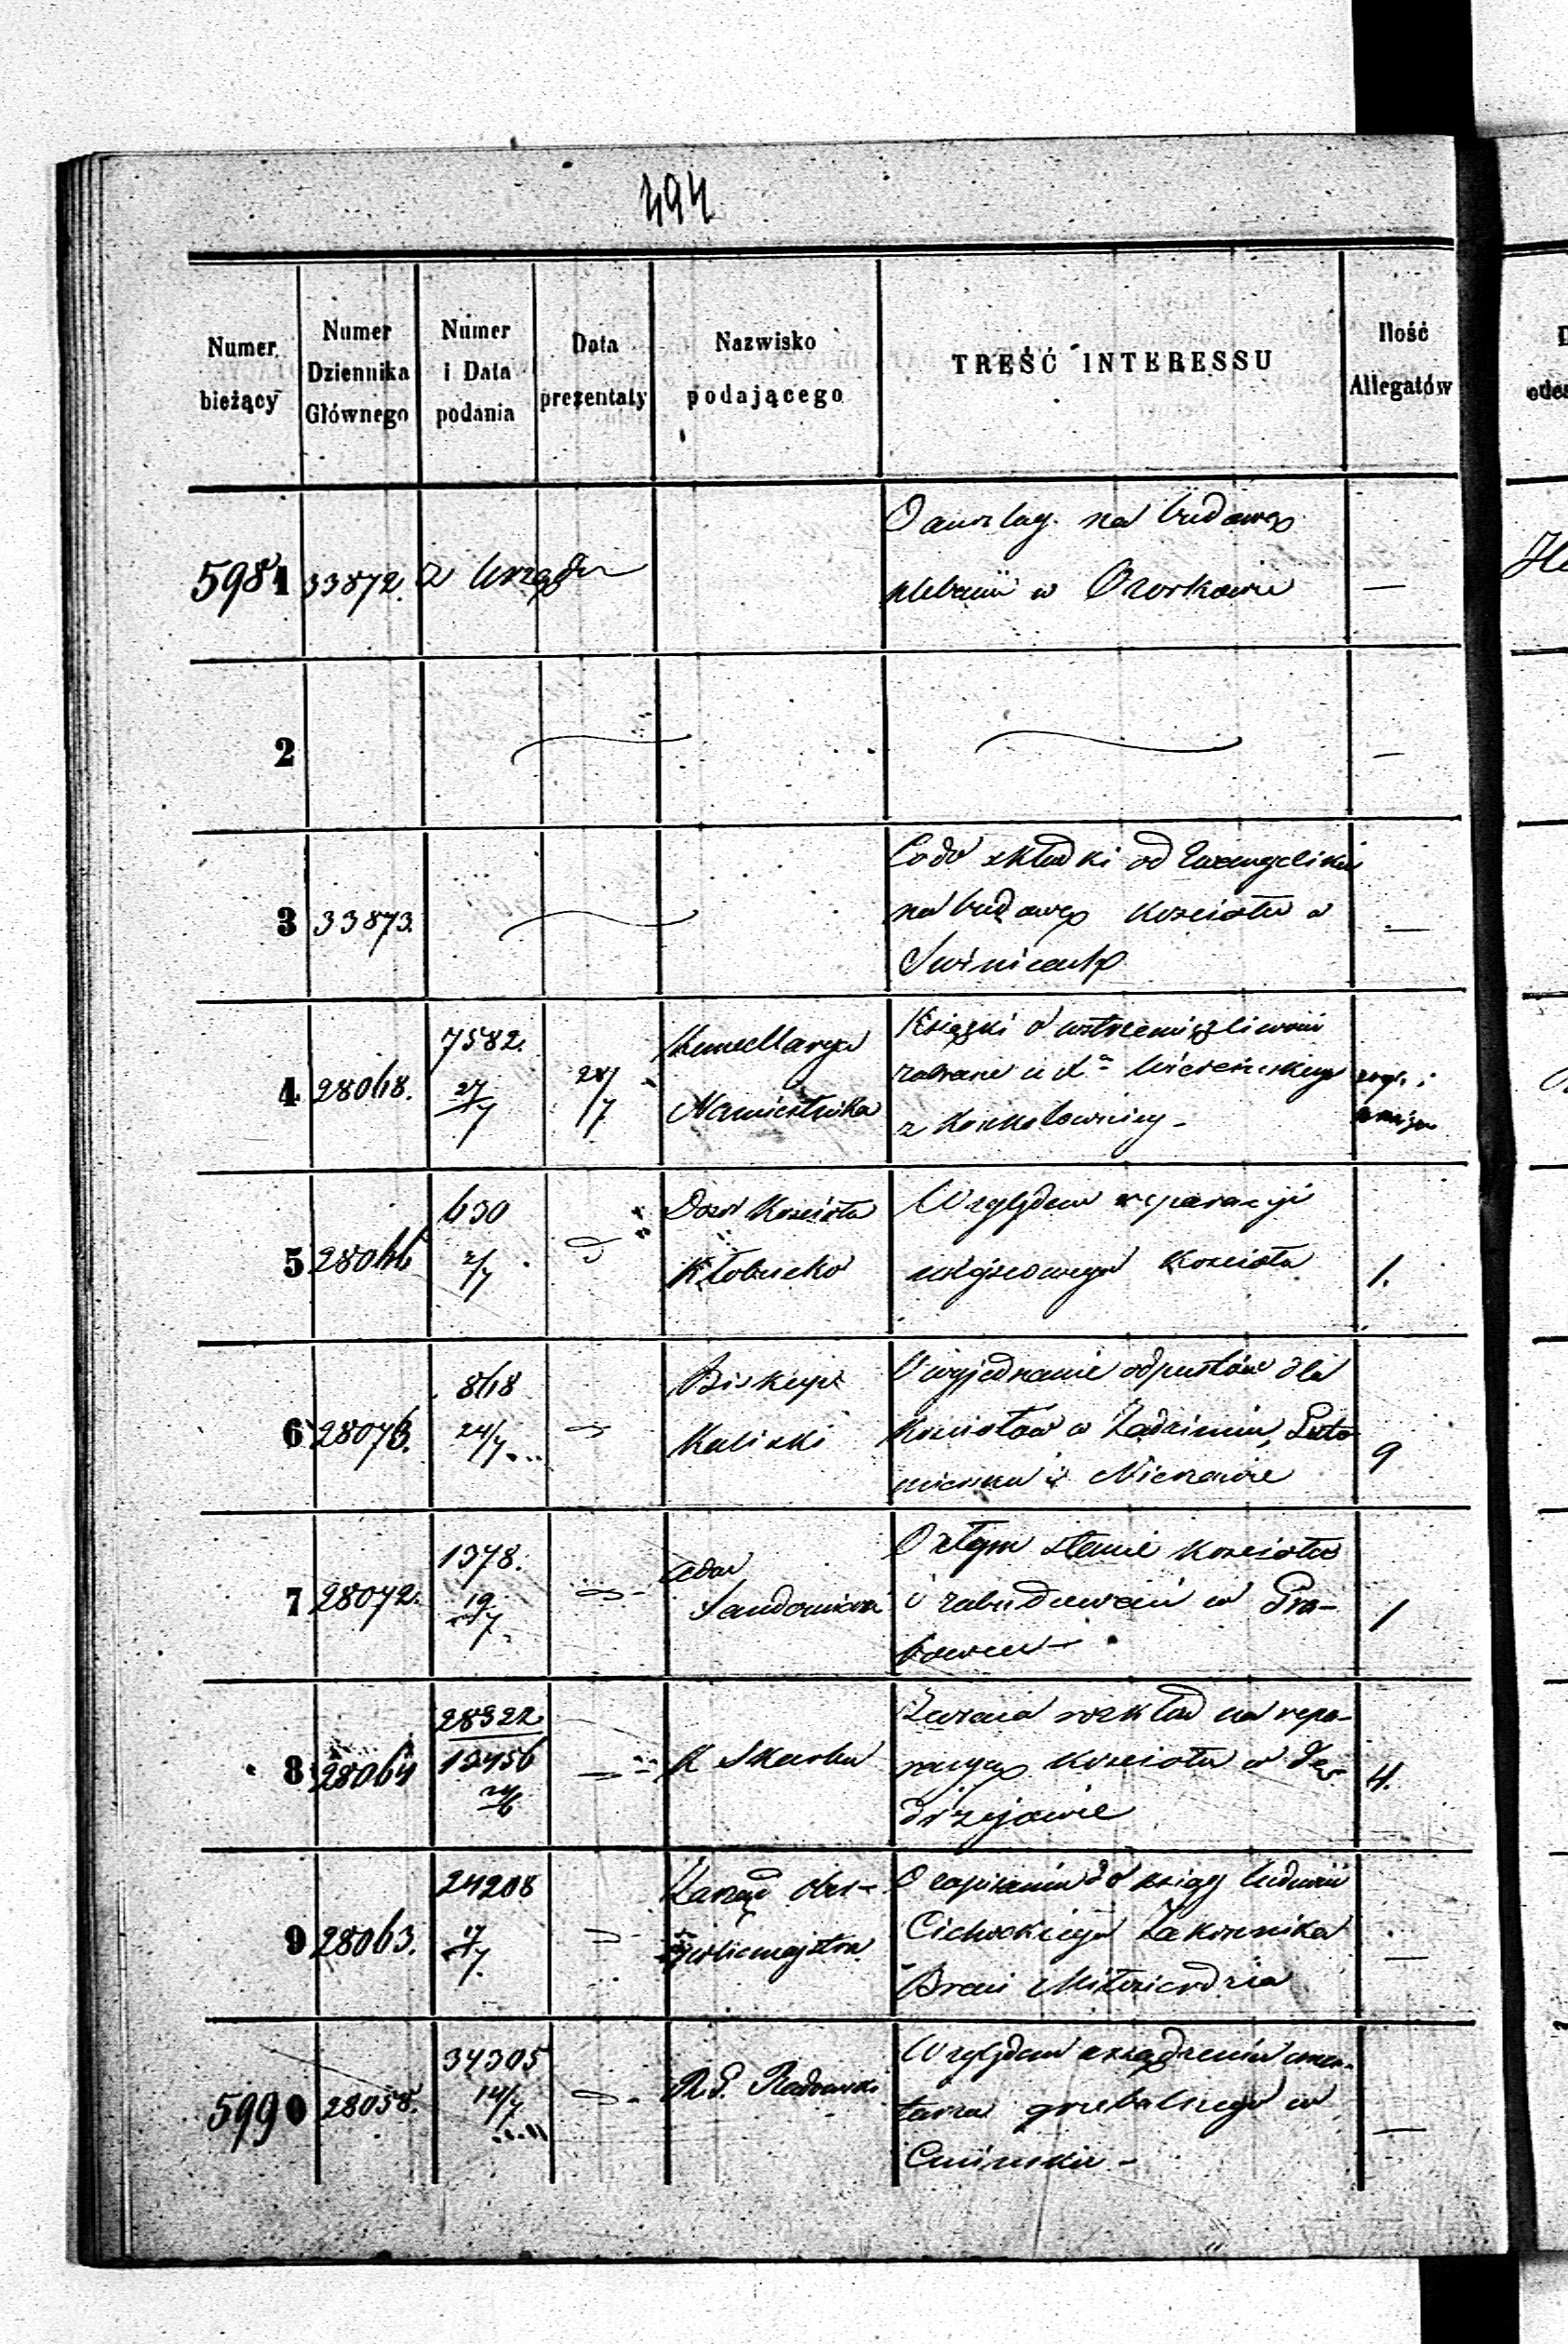 494
Numer bieżący
Numer Dziennika Głównego
Numer i Data podania
Data prezentaty
Nazwisko podającego
TREŚĆ INTERESSU
Ilość Allegatów
5981 33872. z Urzędu
O anszlag. na budowę
plebanii w Ozorkowie —
2 —
3 33873.
Co do składki od Ewangelików
na budowę Kościoła w
Świnicach —
4 28068. 7582. 27/7 28/7
Kancellarya
Namiestnika
Książki o wstrzemięźliwości
zabrane u
z
5 28066 630 2/7 D
Dozór Kościoła
Kłobucko
Względem reparacyi
miejscowego Kościoła 1.
6 28073. 868 24/7
Biskup
Kaliski
O wyjednanie odpustów dla
Kościołów w Zadzimiu, Luto
miersku i Nieszawie 9
7 28072. 1378. 19/7
Adm
Sandomierski
O złym stanie Kościoła
i zabudowań w Gra-
bowcu — 1
8 28064 28322 13456 24/6
K Skarbu
Zwraca rozkład na repa-
racyą Kościoła w Ję-
drzejowie 4.
9 28063. 24208 17/7
Zarząd Ober-
policmajstra
O zapisaniu do księgi ludności
Cichockiego Zakonnika
Braci Miłosierdzia —
5990 28058. 34305 14/7
R. G. Radomski
Względem urządzenia cmen-
tarza grzebalnego w
Ćmińsku — —